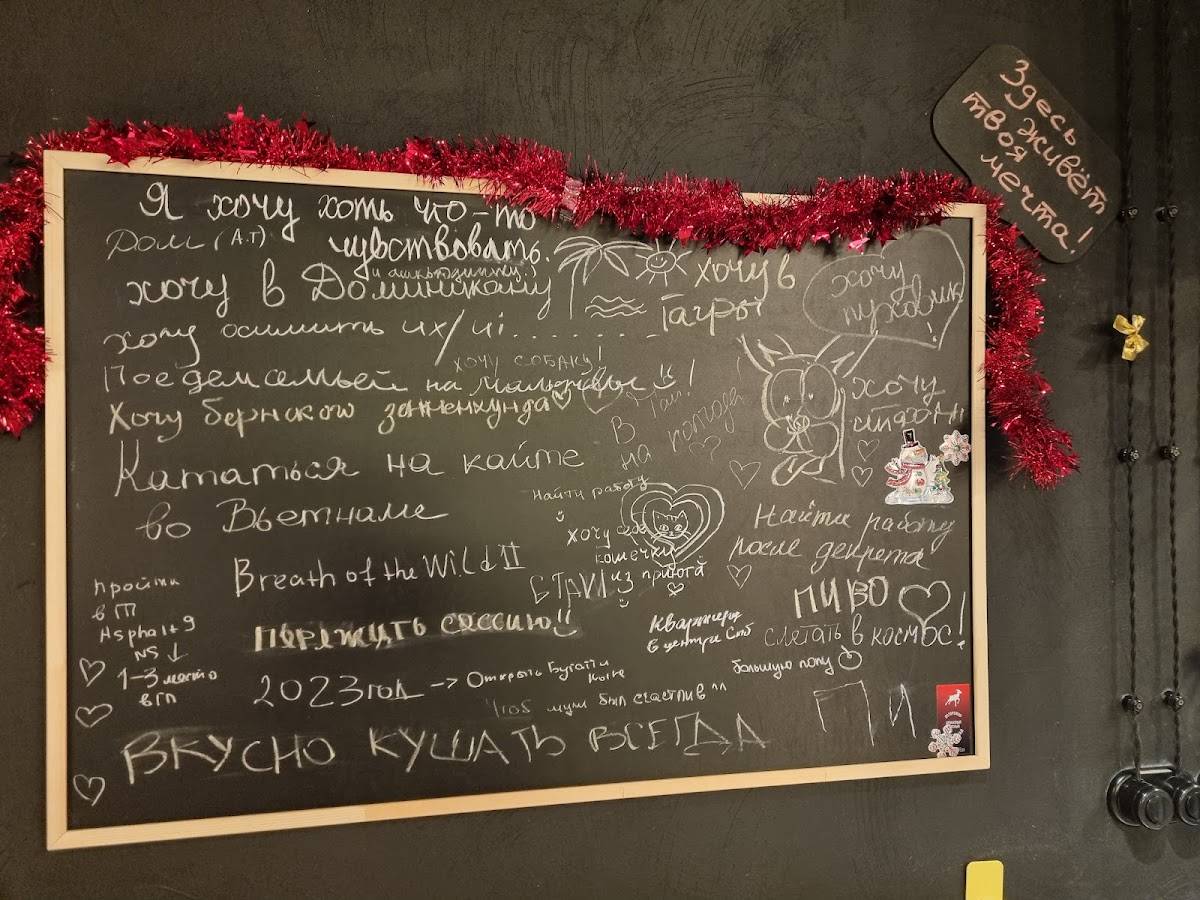 Здесь
живёт
твоя
мечта!
Я хочу хоть что-то
чувствовать.
Дом (А.Т)
хочу в Доминикану
хочу в
Гагры
хочу
пуховик
!
хочу
хочу собаку!
Поедем семьей на Мальдивы
Хочу бернского зенненхунда
хочу
айфон
Кататься на кайте
во Вьетнаме
В
на
Найти работу
хочу себе
кошечку
из приюта
Найти работу
после декрета
Breath of the Wild II
Пройти
в ГП
Asphalt 9
NS ↓
1-3 место
в ГП
ПИВО
Пережить сессию!!
Квартиру
в центре Спб
слетать в космос!
большую попу
2023 год -> Открыть Бугатти
Чтоб муж был счастлив ^^
ВКУСНО КУШАТЬ ВСЕГДА